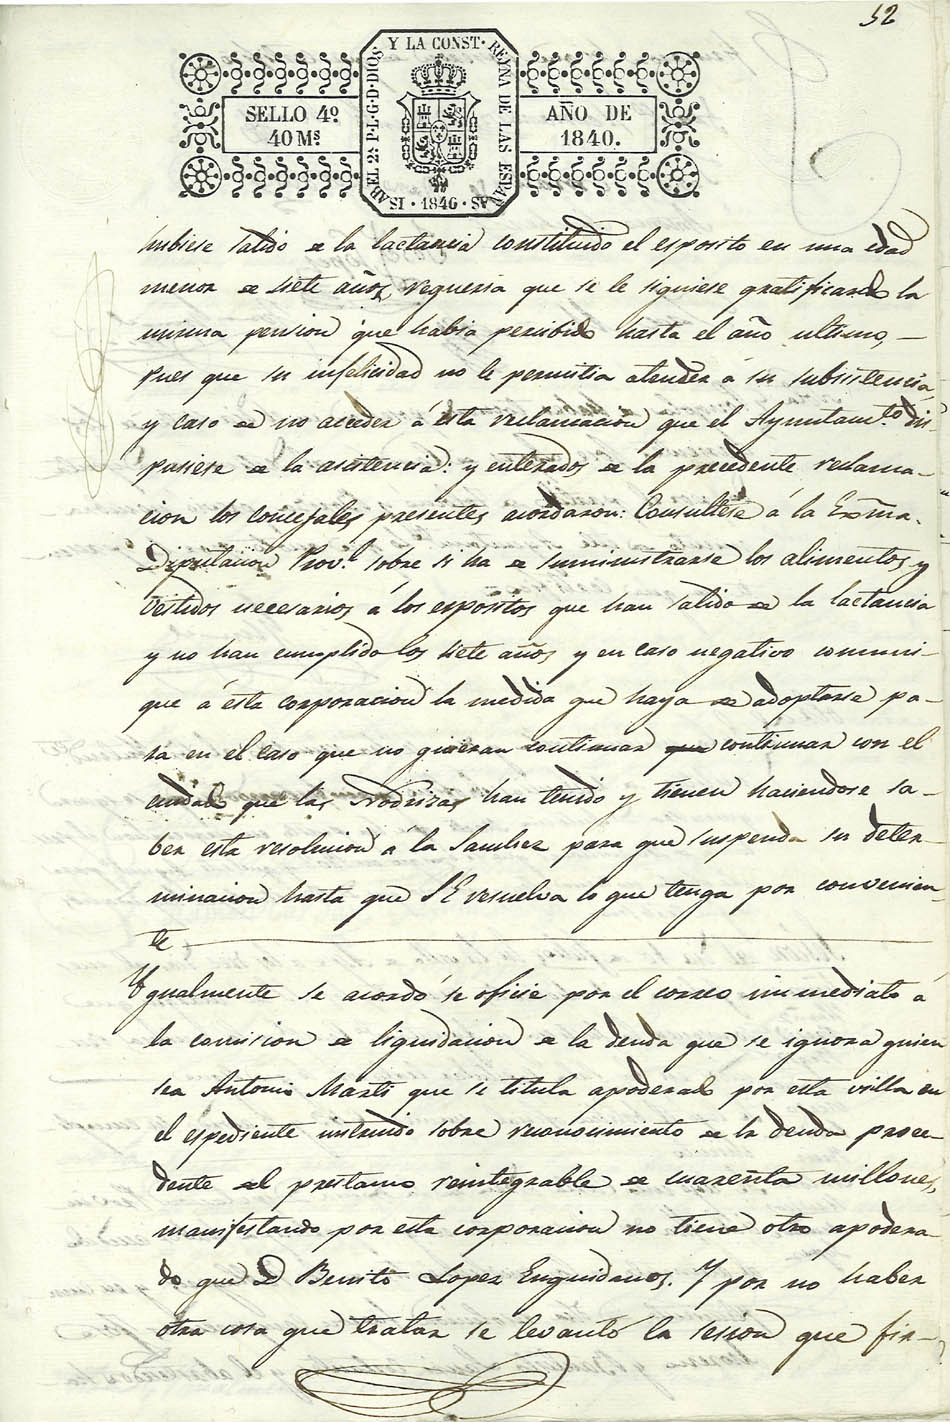 52
SELLO 4º
40 Ms.
ISABEL 2ª P·L·G·D·DIOS Y LA CONST· REYNA DE LAS ESPAÑAS · 1840 ·
AÑO DE
1840.
hubiese salido de la lactancia constituido el esposito en una edad
menor de siete años, requeria que se le siguiese gratificando la
misma pension que habia percibido hasta el año ultimo, —
pues que su infelicidad no le permitia atender á su subsistencia,
y caso de no acceder á esta reclamacion que el Ayuntamto. dis-
pusiese de la asistencia: y enterados de la precedente reclama-
cion los concejales presentes acordaron: Consultese á la Exma.
Diputacion Provl. sobre si ha de suministrarse los alimentos y
vestidos necesarios á los espositos que han salido de la lactancia
y no han cumplido los siete años y en caso negativo comuni-
que á esta corporacion la medida que haya de adoptarse pa-
ra en el caso que no quieran continuar que continuar con el
cuidado que las Nodrizas han tenido y tienen haciendose sa-
ber esta resolucion á la Sanchez para que suspenda su deter-
minacion hasta que S E resuelva lo que tenga por convenien-
te
Ygualmente se acordó se oficie por el correo immediato á
la comision de liquidacion de la deuda que se ignora quien
sea Antonio Marti que se titula apoderado por esta villa en
el espediente instruido sobre reconocimiento de la deuda proce-
dente del prestamo reintegrable de cuarenta millones,
manifestando por esta corporacion no tiene otro apodera-
do que D Benito Lopez Enguidanos. Y por no haber
otra cosa que tratar se levantó la sesion que fir-